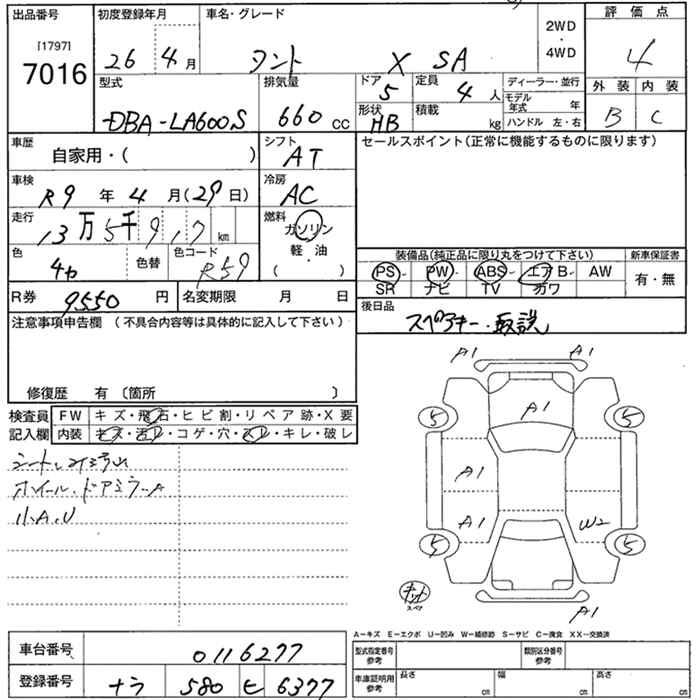 出品番号 初度登録年月 車名・グレード 2WD・4WD 評価点
[1797] 7016 26 4月 タント X SA 4
型式 排気量 ドア 5 定員 4人 ディーラー・並行 外装 内装
DBA-LA600S 660 CC 形状 HB 積載 kg モデル年式 年 B C
ハンドル 左・右
車歴 自家用・( ) シフト AT セールスポイント(正常に機能するものに限ります)
車検 R9年4月(29日) 冷房 AC
走行 13万5千9 17 km 燃料 ガソリン・軽・油 ( )
色 色替 色コード 装備品(純正品に限り丸をつけて下さい) 新車保証書
PS PW ABS エアB AW 有・無
SR ナビ TV カワ
R券 9550円 名変期限 月 日 後日品
注意事項申告欄 (不具合内容等は具体的に記入して下さい) スペアキー・取説
修復歴 有 〔箇所 〕
検査員記入欄 FW キズ・飛石・ヒビ割・リペア跡・X要
内装 キズ・汚レ・コゲ・穴・スレ・キレ・破レ
ホイール・ドアミラーA
小A.U
A1 A1
A1
5 5
A1
A1 W2
5 5
キット スペア A1
A－キズ E－エクボ U－凹み W－補修跡 S－サビ C－腐食 XX－交換済
車台番号 0116277 型式指定番号 参考 類別区分番号 参考
登録番号 ナラ 580 ヒ 6377 車庫証明用 参考 長さ cm 幅 cm 高さ cm